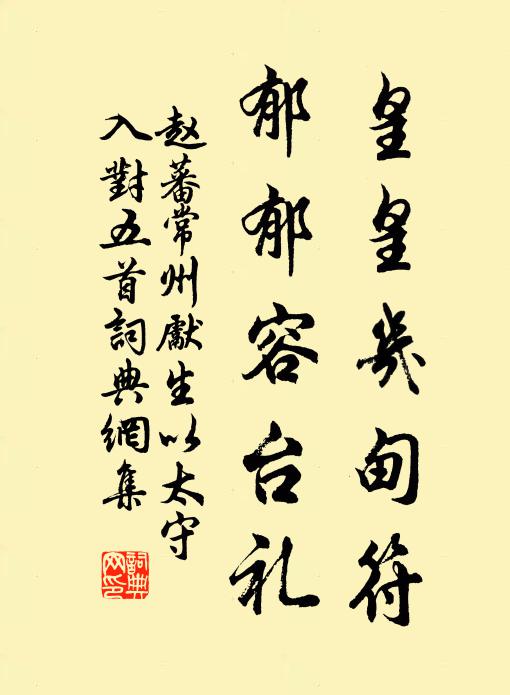 皇皇幾甸符
郁郁容台礼
赵蕃常州獻生以太守
入對五首詞典網集
詞典网印